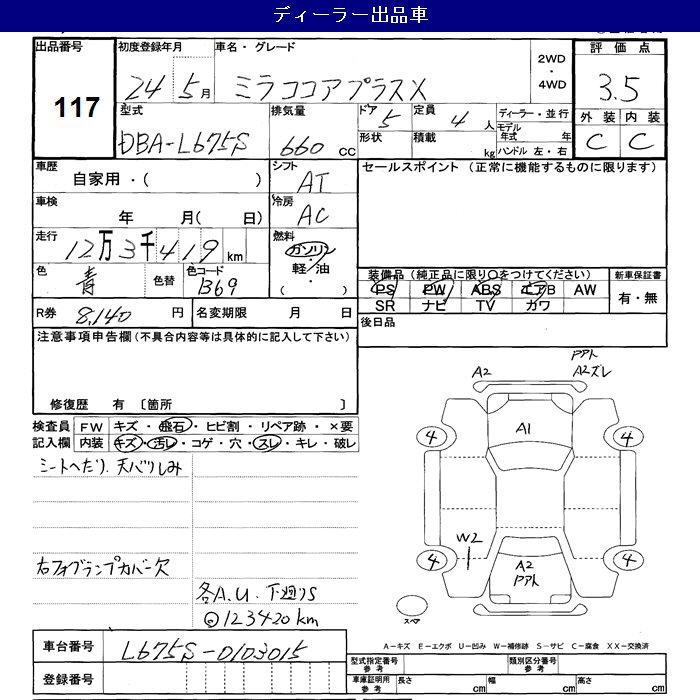 ディーラー出品車
出品番号 初度登録年月 車名・グレード 2WD ・ 4WD 評価点
117 24 5月 ミラココアプラスX 3.5
型式 排気量 ドア 定員 ディーラー・並行 外装 内装
DBA-L675S 660 cc 5 4人 モデル年式 年 C C
形状 積載 kg ハンドル 左・右
車歴 シフト セールスポイント (正常に機能するものに限ります)
自家用・( ) AT
車検 冷房
年 月( 日) AC
走行 燃料
12万3千419 km ガソリン・軽油
色 色替 色コード ( )
青 B69
装備品(純正品に限り○をつけてください) 新車保証書
PS PW ABS エアB AW 有・無
SR ナビ TV カワ
R券 8,140 円 名変期限 月 日 後日品
注意事項申告欄(不具合内容等は具体的に記入して下さい)
修復歴 有 〔箇所 〕
検査員 FW キズ・飛石・ヒビ割・リペア跡・×要
記入欄 内装 キズ・汚レ・コゲ・穴・スレ・キレ・破レ
シートへたり、天バリしみ
右フォグランプカバー欠
各A.U. 下廻りS
◎123420km
A2 PアトA2ズレ
A1
4 4
W2
A2
Pアト
4 4
スペア
A-キズ E-エクボ U-凹み W-補修跡 S-サビ C-腐食 XX-交換済
車台番号 L675S-0103015
登録番号
型式指定番号 参考 類別区分番号 参考
車庫証明用 参考 長さ cm 幅 cm 高さ cm